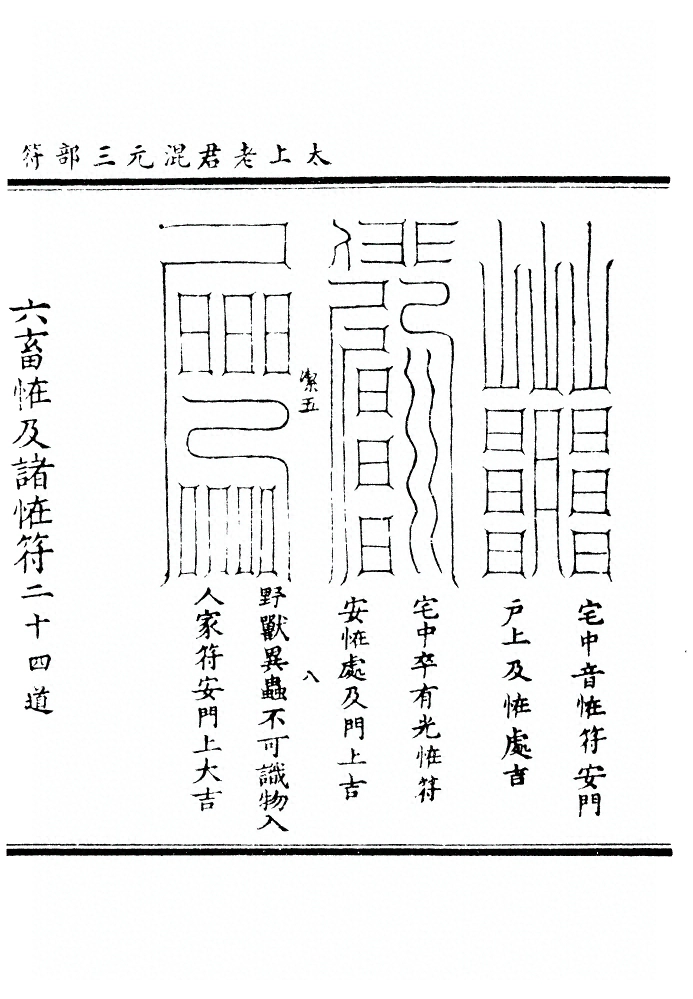 太上老君混元三部符
宅中音恠符安門
戸上及恠處吉
宅中卒有光恠符
安恠處及門上吉
潔五
八
野獸異蟲不可識物入
人家符安門上大吉
六畜恠及諸恠符二十四道